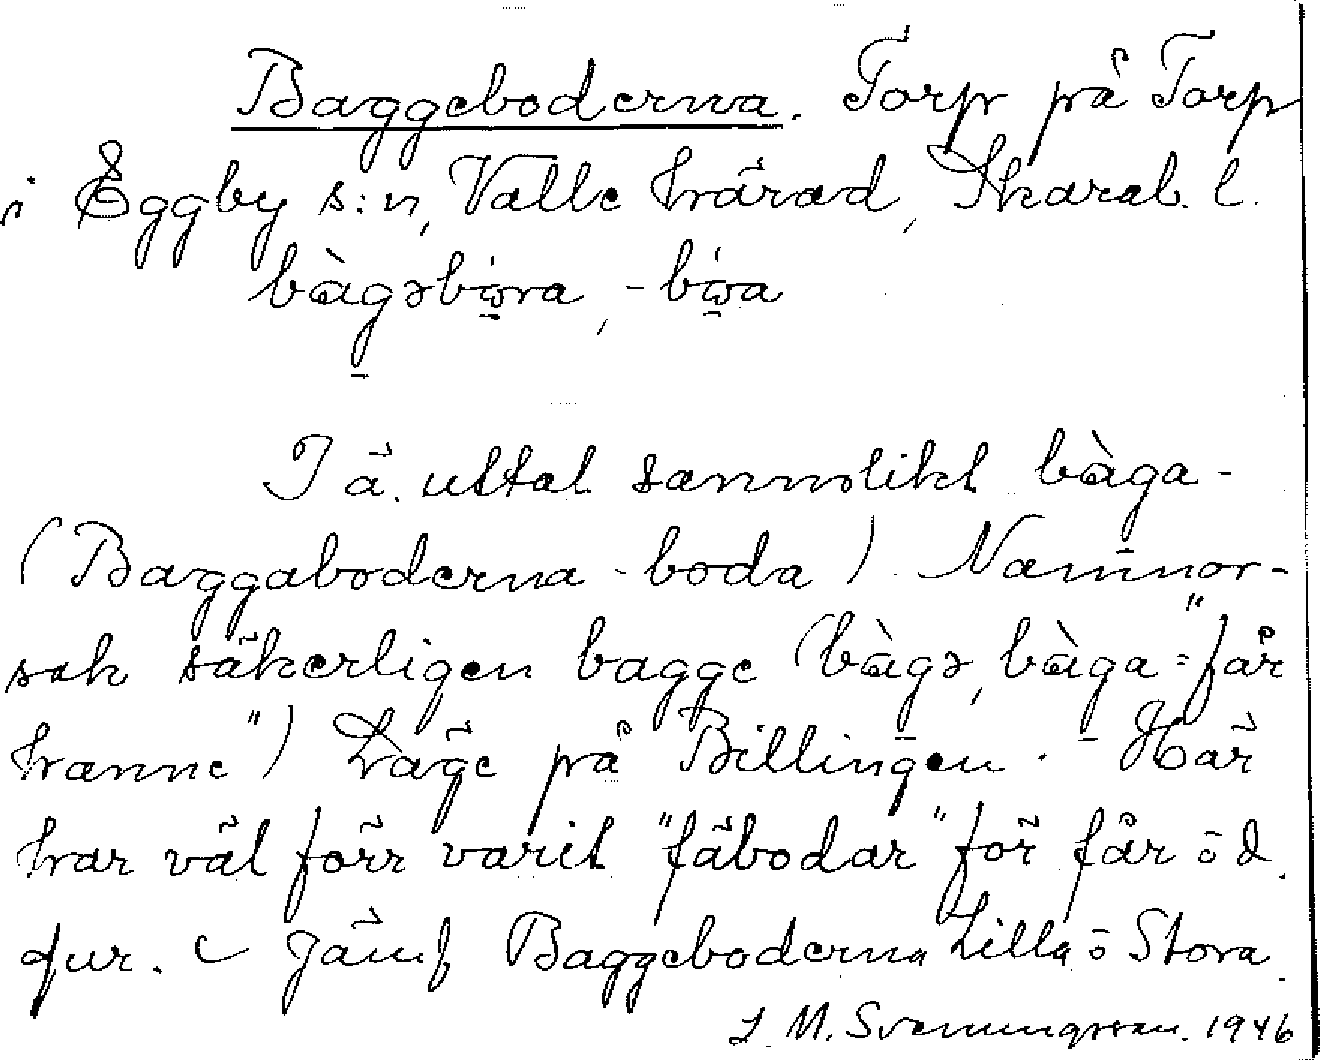 Baggeboderna. Torp på Torp
i Eggby s:n, Valle härad, Skarab. l.
bàgəbω̣ra, -bω̣a
I ä. uttal sannolikt bàga-
(Baggaboderna -boda). Namnor-
sak säkerligen bagge (bàgə, bàga = "får
hanne") Läge på Billingen. - Här
har väl förr varit "fäbodar" för får o d
jur. Jämf Baggeboderna Lilla o Stora.
J. M. Svenungsson. 1946